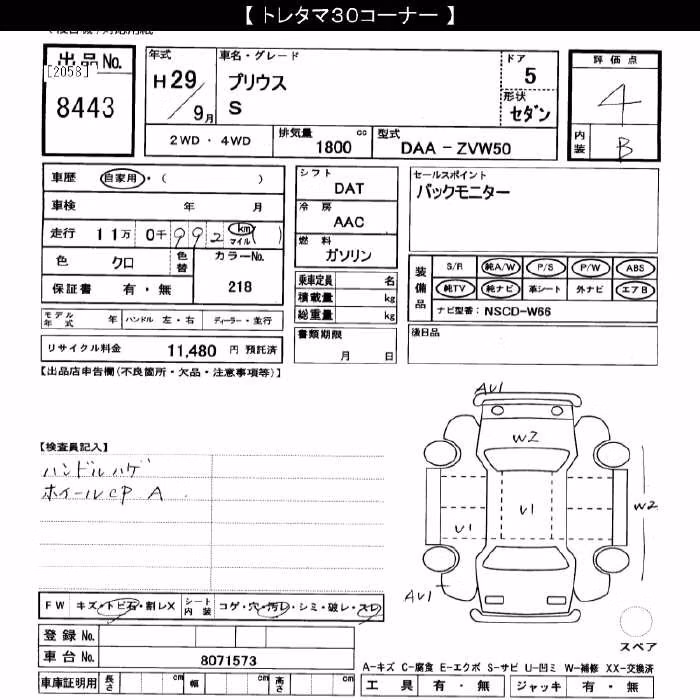 【 トレタマ30コーナー 】
出品No.
[2058]
8443
年式
H29
9月
車名・グレード
プリウス
S
ドア
5
形状
セダン
評価点
4
内装
B
2WD・4WD
排気量 cc
1800
型式
DAA-ZVW50
車歴 自家用・( )
車検 年 月
走行 11万 0千992 ( km マイル )
色 クロ
色替
カラーNo.
218
保証書 有・無
モデル年式 年 ハンドル 左・右 ディーラー・並行
リサイクル料金 11,480 円 預託済
シフト
DAT
冷房
AAC
燃料
ガソリン
乗車定員 名
積載量 kg
総重量 kg
書類期限
月 日
セールスポイント
バックモニター
装備品
S/R 純A/W P/S P/W ABS
純TV 純ナビ 革シート 外ナビ エアB
ナビ型番: NSCD-W66
後日品
【出品店申告欄(不良箇所・欠品・注意事項等)】
【検査員記入】
ハンドルハゲ
ホイールCP A
AU1
W2
U1
U1
W2
AU1
スペア
FW キズ・トビ石・割レX
シート内装 コゲ・穴・汚レ・シミ・破レ・スレ
登録No.
車台No. 8071573
車庫証明用 長さ cm 幅 cm 高さ cm
A-キズ C-腐食 E-エクボ S-サビ U-凹ミ W-補修 XX-交換済
工具 有・無 ジャッキ 有・無